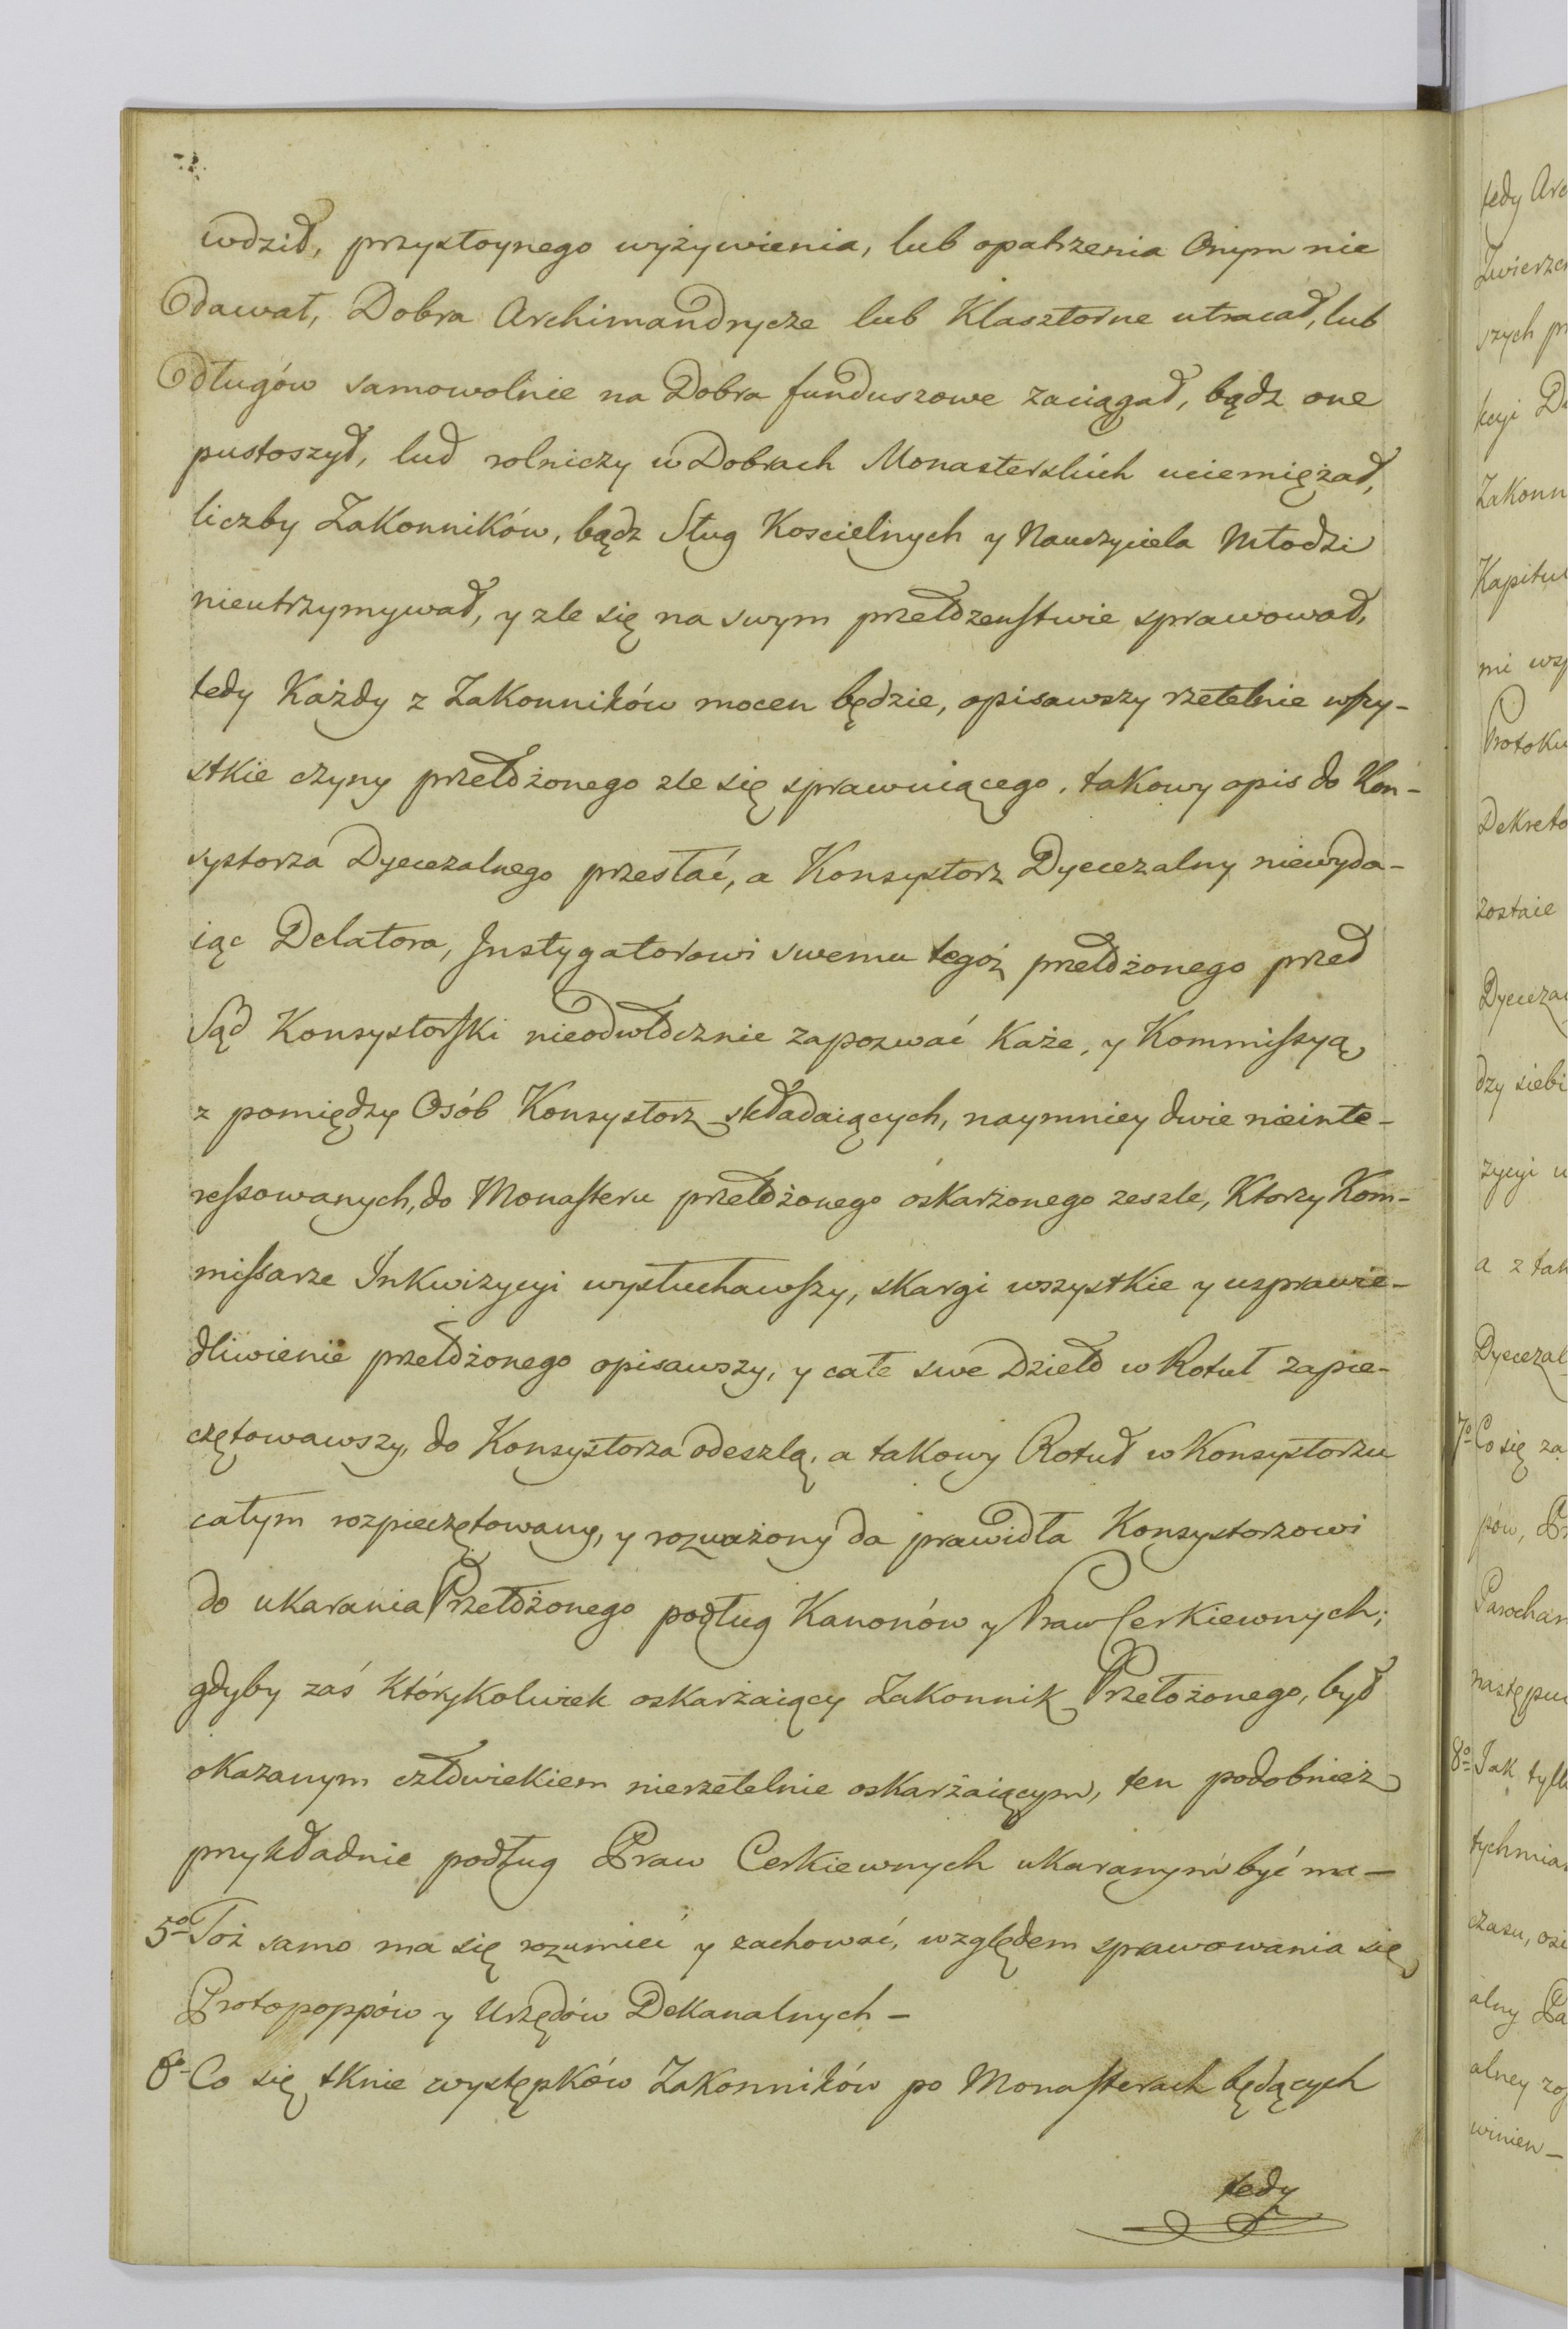 wdził, przystoynego wyżywienia, lub opatrzenia Onym nie
dawał, Dobra Archimandrycze lub Klasztorne utracał, lub
długów samowolnie na Dobra funduszowe zaciągał, bądz one
pustoszył, lud rolniczy w Dobrach Monasterskich uciemiężał,
liczby Zakonników, bądz Sług Koscielnych y Nauczyciela Młodzi
nieutrzymywał, y zle się na swym przełożenstwie sprawował,
tedy Każdy z Zakonników mocen będzie, opisawszy rzetelnie wszy-
stkie czyny przełożonego zle się sprawuiącego, takowy opis do Kon-
systorza Dyecezalnego przesłać, a Konsystorz Dyecezalny niewyda-
iąc Delatora, Instygatorowi swemu tegoż przełożonego przed
Sąd Konsystorski nieodwłocznie zapozwać Każe, y Kommissyą
z pomiędzy Osób Konsystorz składaiących, naymniey dwie nieinte-
ressowanych, do Monasteru przełożonego oskarżonego zeszle, Ktorzy Kom-
missarze Inkwizycyi wysłuchawszy, skargi wszystkie y usprawie-
dliwienie przełożonego opisawszy, y całe swe Dzieło w Rotuł zapie-
czętowawszy, do Konsystorza odeszlą, a takowy Rotuł w Konsystorzu
całym rozpieczętowany, y rozważony da prawidła Konsystorzowi
do ukarania Przełożonego podług Kanonów y Praw Cerkiewnych;
gdyby zaś którykolwiek oskarżaiący Zakonnik Przełożonego, był
okazanym człowiekiem nierzetelnie oskarżaiącym, ten podobnież
przykładnie podług Praw Cerkiewnych ukaranym być ma —
5º Toż samo ma się rozumieć y zachować, względem sprawowania się
Protopoppów y Urzędów Dekanalnych —
6º Co się tknie występków Zakonników po Monasterach będących
tedy
tedy
szych
Zakonn
Kapitul
mi
Protoku
Dekreto
zostaie
dzy siebi
a z tak
Dyecezal
7º Co się za
pów,
następu
8º Jak tylk
tychmias
czasu,
alny
alney
winien —